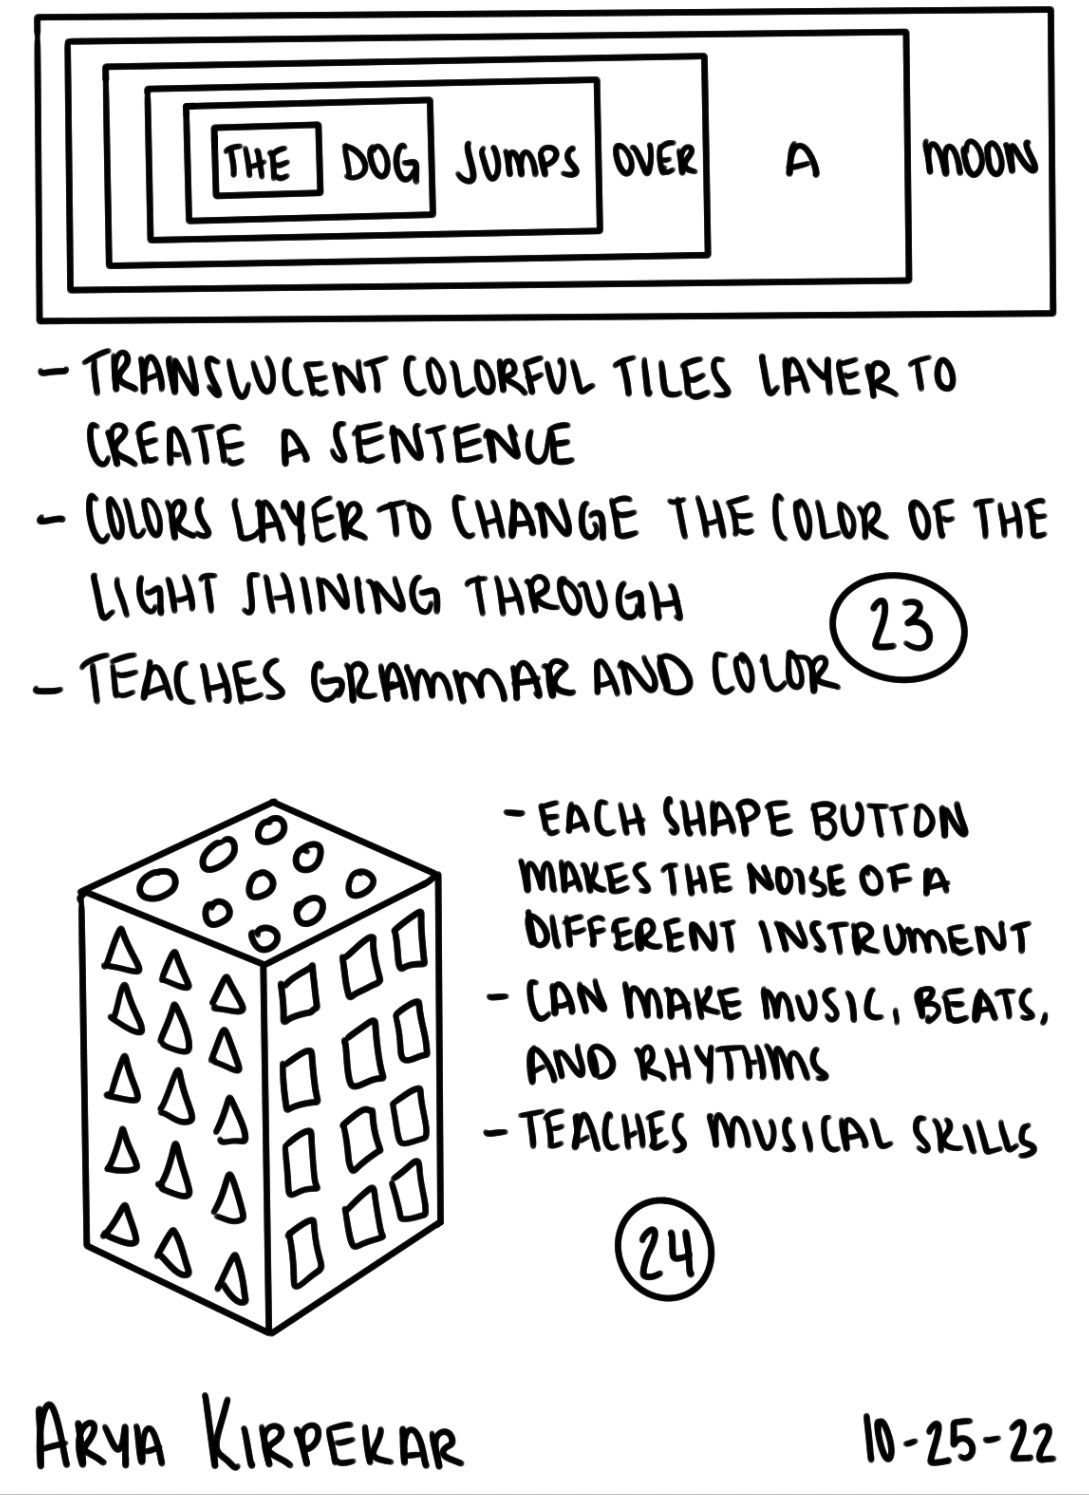 THE DOG JUMPS OVER A MOON
- TRANSLUCENT COLORFUL TILES LAYER TO
CREATE A SENTENCE
- COLORS LAYER TO CHANGE THE COLOR OF THE
LIGHT SHINING THROUGH
- TEACHES GRAMMAR AND COLOR
23
- EACH SHAPE BUTTON
MAKES THE NOISE OF A
DIFFERENT INSTRUMENT
- CAN MAKE MUSIC, BEATS,
AND RHYTHMS
- TEACHES MUSICAL SKILLS
24
ARYA KIRPEKAR
10-25-22